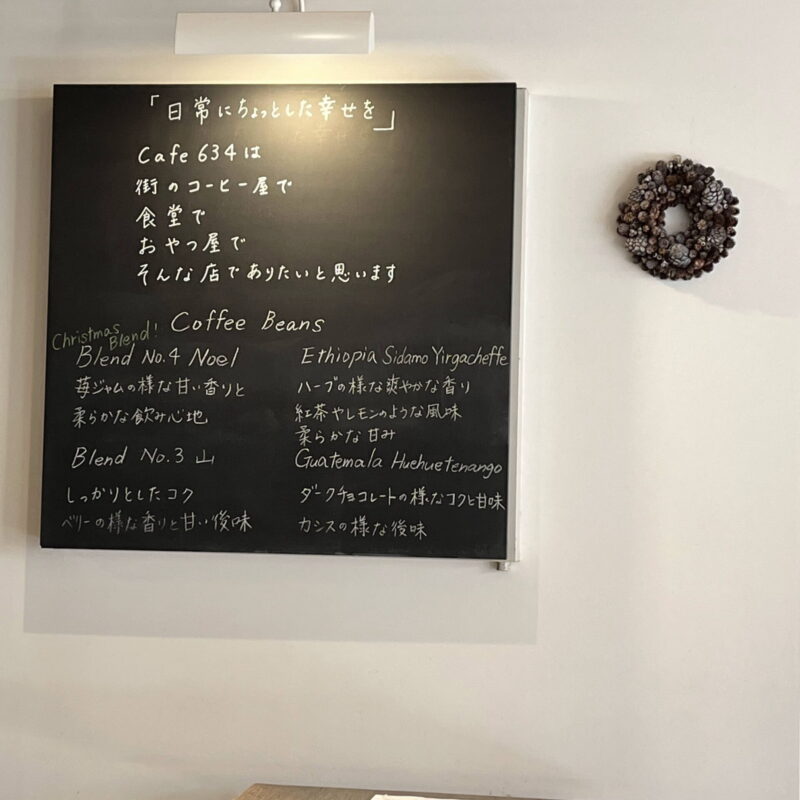 「日常にちょっとした幸せを」
Cafe 634は
街のコーヒー屋で
食堂で
おやつ屋で
そんな店でありたいと思います
Coffee Beans
Christmas Blend!
Blend No.4 Noel
苺ジャムの様な甘い香りと
柔らかな飲み心地
Blend No.3 山
しっかりとしたコク
ベリーの様な香りと甘い後味
Ethiopia Sidamo Yirgacheffe
ハーブの様な爽やかな香り
紅茶やレモンのような風味
柔らかな甘み
Guatemala Huehuetenango
ダークチョコレートの様なコクと甘味
カシスの様な後味